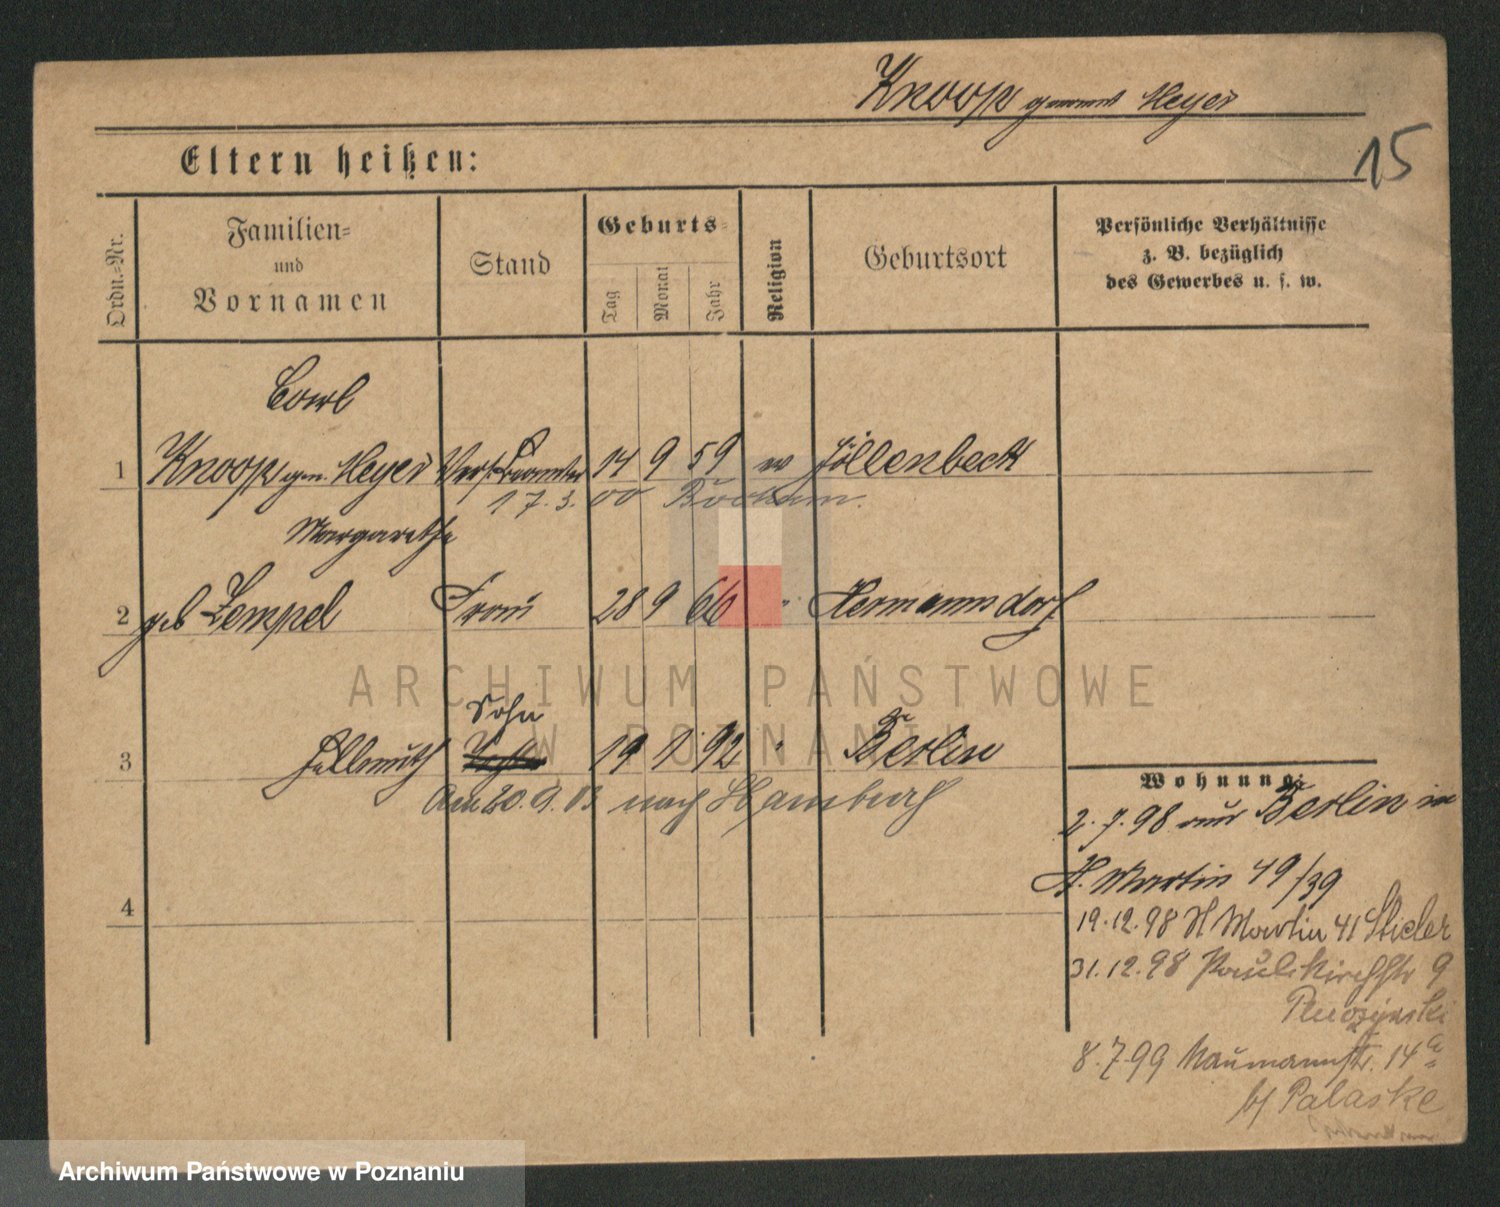 Knoop genannt Meyer
15
Eltern heißen:
Ordn.=Nr.
Familien=
und
Vornamen
Stand
Geburts=
Tag
Monat
Jahr
Religion
Geburtsort
Persönliche Verhältnisse
z. B. bezüglich
des Gewerbes u. s. w.
Carl
1 Knoop gen. Meyer Vers. Beamter 14 9 59 ev Jöllenbeck
17.3.00 Bochum.
Margarethe
2 geb Zempel Frau 28 9 66 " Hermannsdorf
Sohn
3 Hellmuth 19 1 92 " Berlin
Am 20.9.03 nach Hamburg
4
Wohnung:
2.7.98 aus Berlin in
St. Martin 49/39
19.12.98 St Martin 41 Stieler
31.12.98 Paulikirchstr 9
8.7.99 Naumannstr. 14a
b/ Palaske
ARCHIWUM PAŃSTWOWE
W POZNANIU
Archiwum Państwowe w Poznaniu